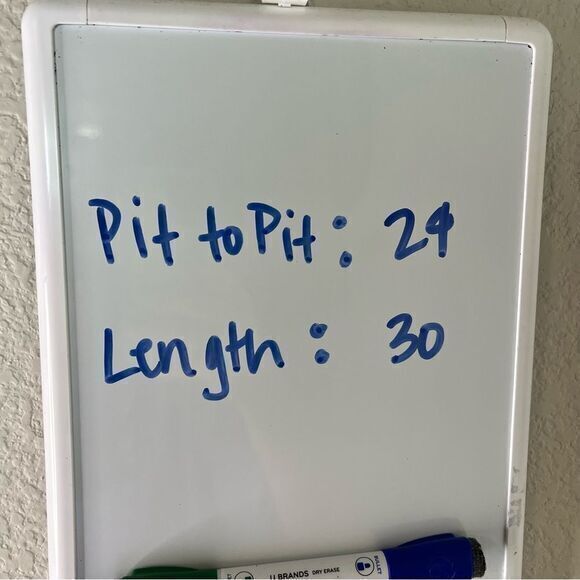 Pit to Pit: 24
Length: 30
U BRANDS DRY ERASE BULLET